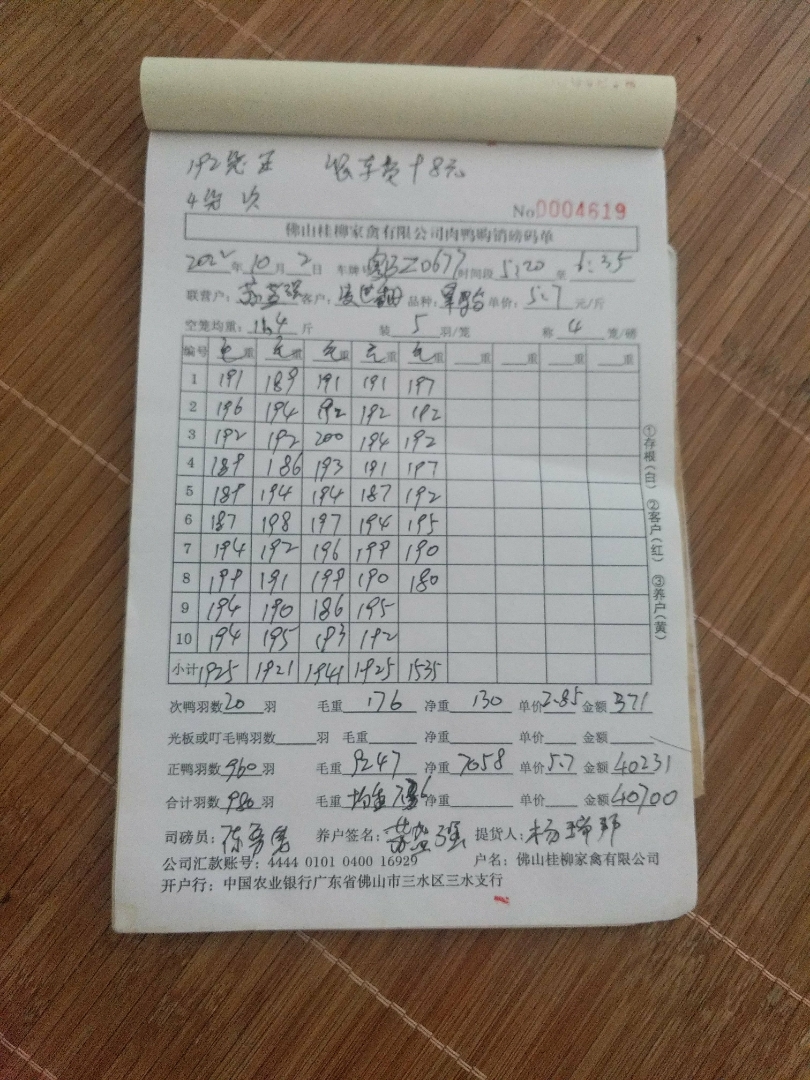 192笼 正 限车费98元
4笼 次
No0004619
佛山桂柳家禽有限公司肉鸭购销磅码单
2022年10月2日 车牌号 粤BZ0677 时间段 5:20 至 6:35
联营户: 强 客户: 品种: 单价: 5.7 元/斤
空笼均重: 11.4 斤 装 5 羽/笼 称 4 笼/磅
编号 毛重 毛重 毛重 毛重 毛重 重 重 重 重
1 191 189 191 191 197
2 196 194 192 192 192
3 192 192 200 194 192
4 189 186 193 191 197
5 189 194 194 187 192
6 187 198 197 194 195
7 194 192 196 199 190
8 199 191 199 190 180
9 194 190 186 195
10 194 195 193 192
小计 1925 1921 1941 1925 1535
次鸭羽数20羽 毛重 176 净重 130 单价2.85 金额 371
光板或叮毛鸭羽数 羽 毛重 净重 单价 金额
正鸭羽数960羽 毛重 9247 净重 7058 单价5.7 金额40231
合计羽数980羽 毛重 均重 净重 单价 金额40700
司磅员: 陈 养户签名: 强 提货人: 杨
公司汇款账号: 4444 0101 0400 16929 户名: 佛山桂柳家禽有限公司
开户行: 中国农业银行广东省佛山市三水区三水支行
①存根(白) ②客户(红) ③养户(黄)